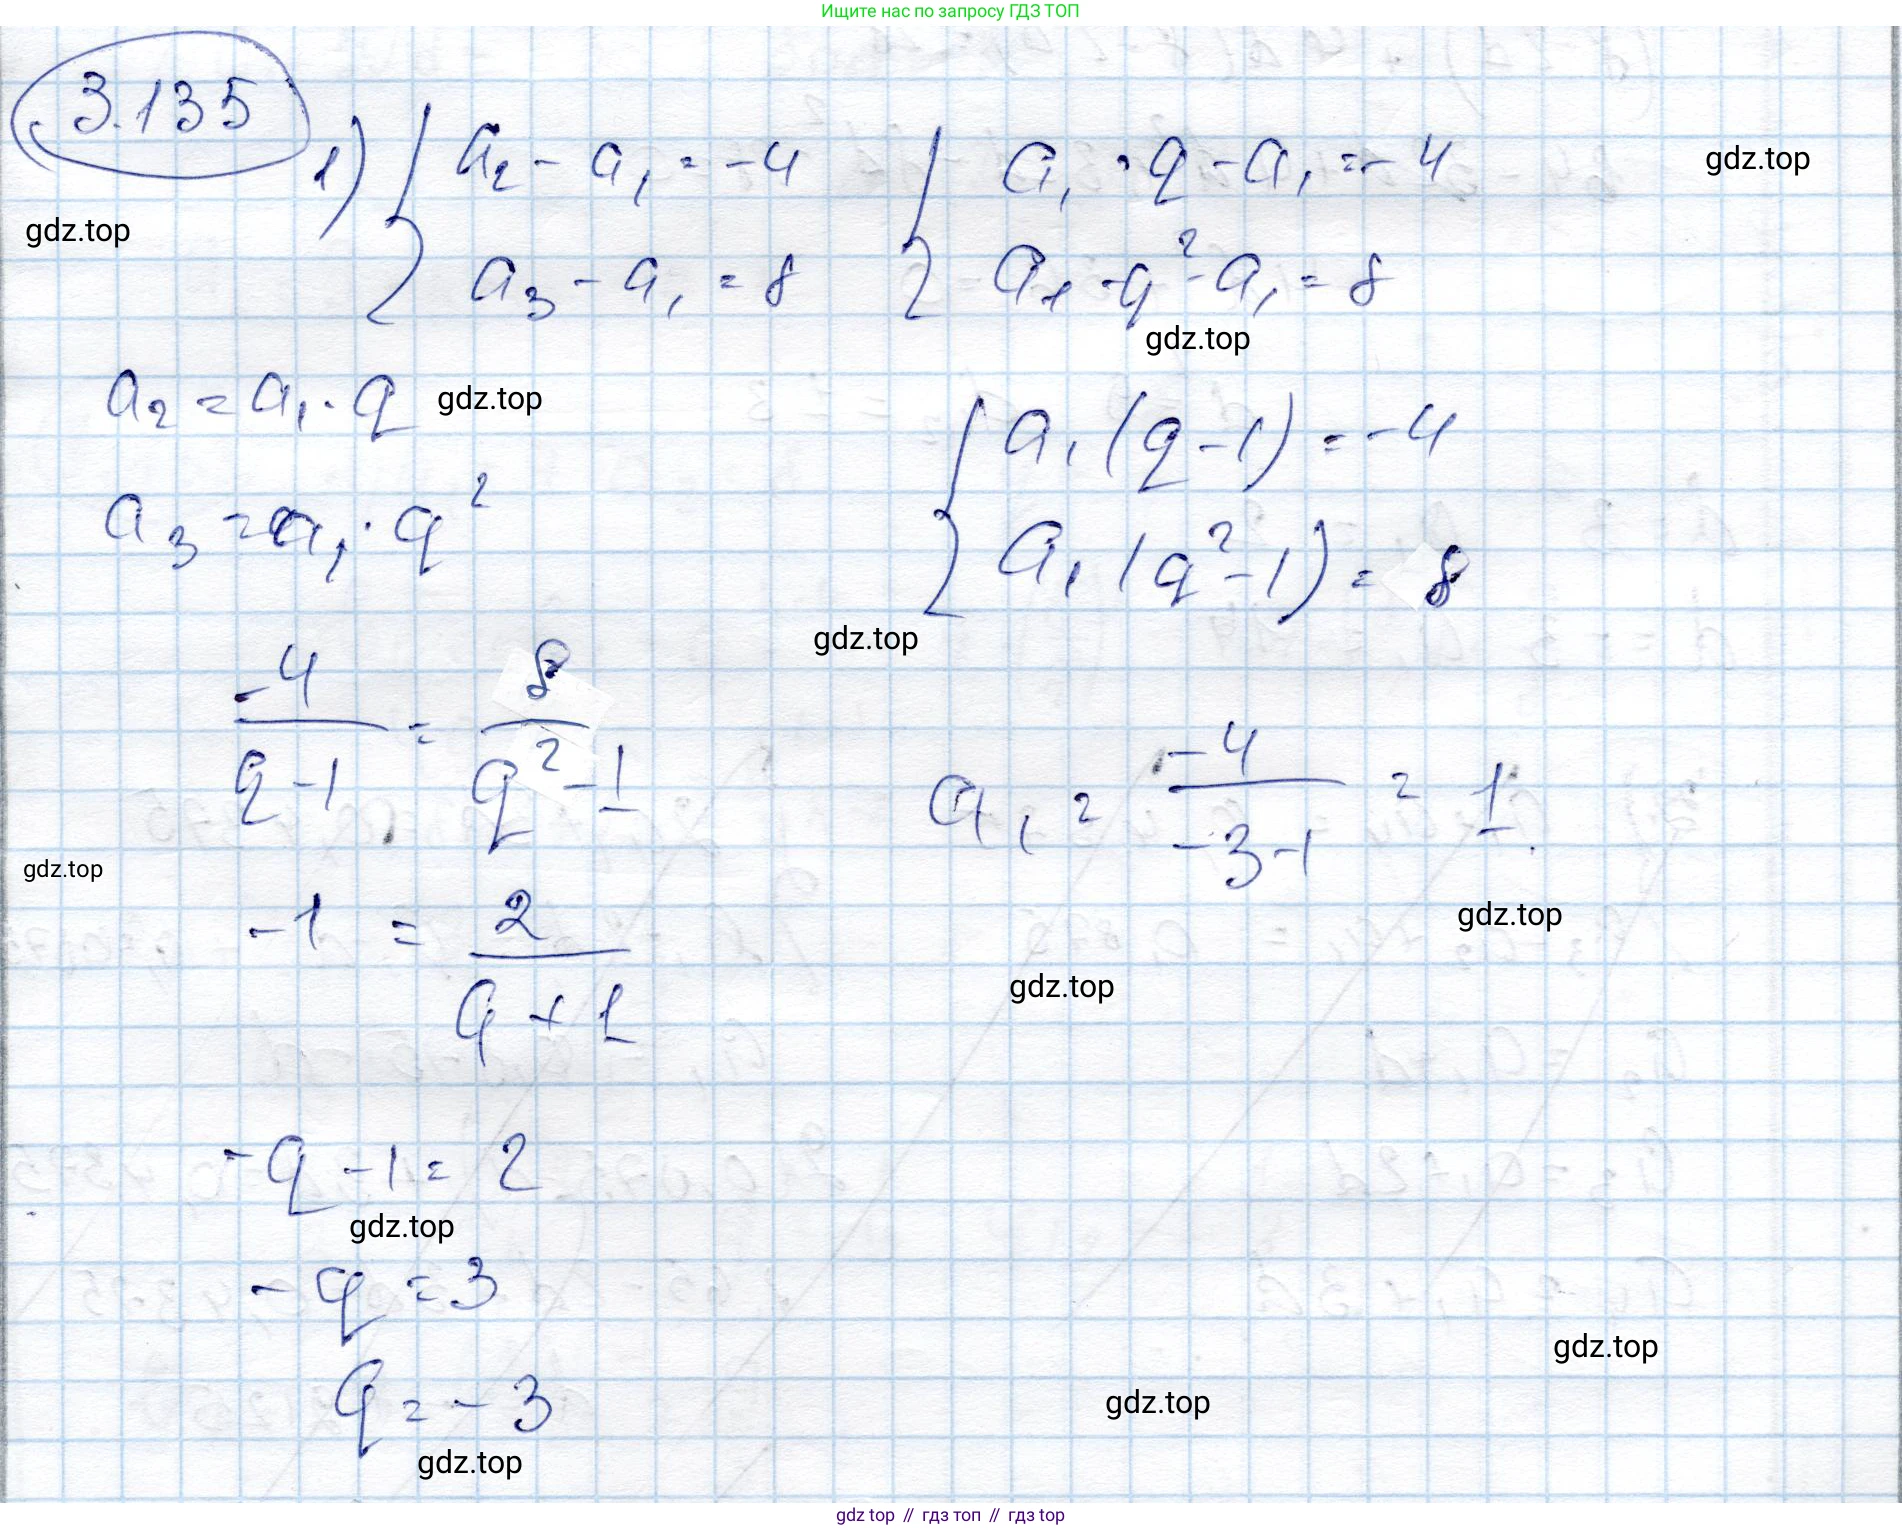 Ищите нас по запросу ГДЗ ТОП
3.135
1) { a₂ - a₁ = -4 { a₁ · q - a₁ = -4
gdz.top
gdz.top
a₃ - a₁ = 8 a₁ · q² - a₁ = 8
gdz.top
a₂ = a₁ · q
gdz.top
{ a₁ (q - 1) = -4
a₃ = a₁ · q²
a₁ (q² - 1) = 8
gdz.top
-4 / (q - 1) = 8 / (q² - 1)
a₁ = -4 / (-3 - 1) = 1.
gdz.top
gdz.top
-1 = 2 / (q + 1)
gdz.top
-q - 1 = 2
gdz.top
-q = 3
gdz.top
q = -3
gdz.top
gdz.top
gdz top // гдз топ // гдз top